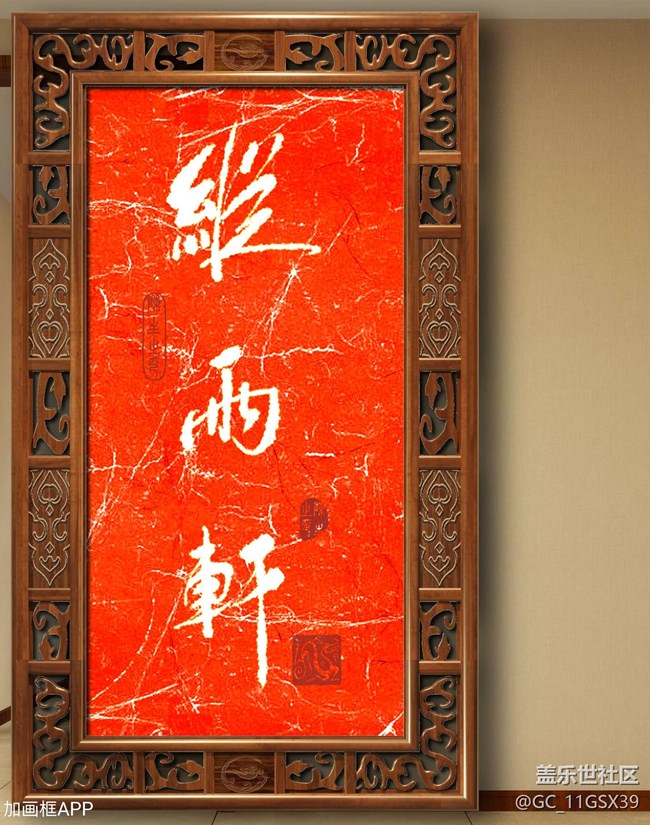 縱雨軒
盖乐世社区
加画框APP
@GC_11GSX39